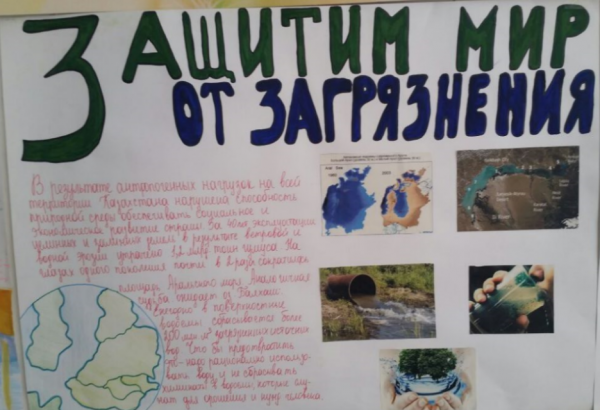 ЗАЩИТИМ МИР
ОТ ЗАГРЯЗНЕНИЯ
В результате антропогенных нагрузок на всей
территории Казахстана нарушена способность
природной среды обеспечивать социальное и
экономическое развитие страны. За годы эксплуатации
целинных и залежных земель в результате ветровой и
водной эрозии утрачено 1,2 млрд тонн гумуса. На
глазах одного поколения почти в 2 раза сократилась
площадь Аральского моря. Аналогичная
судьба ожидает оз Балхаш.
Ежегодно в поверхностные
водоемы сбрасывается более
200 млн м³ загрязненных
вод. Что бы предотвратить
надо рационально использо-
вать воду и не сбрасывать
в водоемы, которые
для орошения и нужд человека.